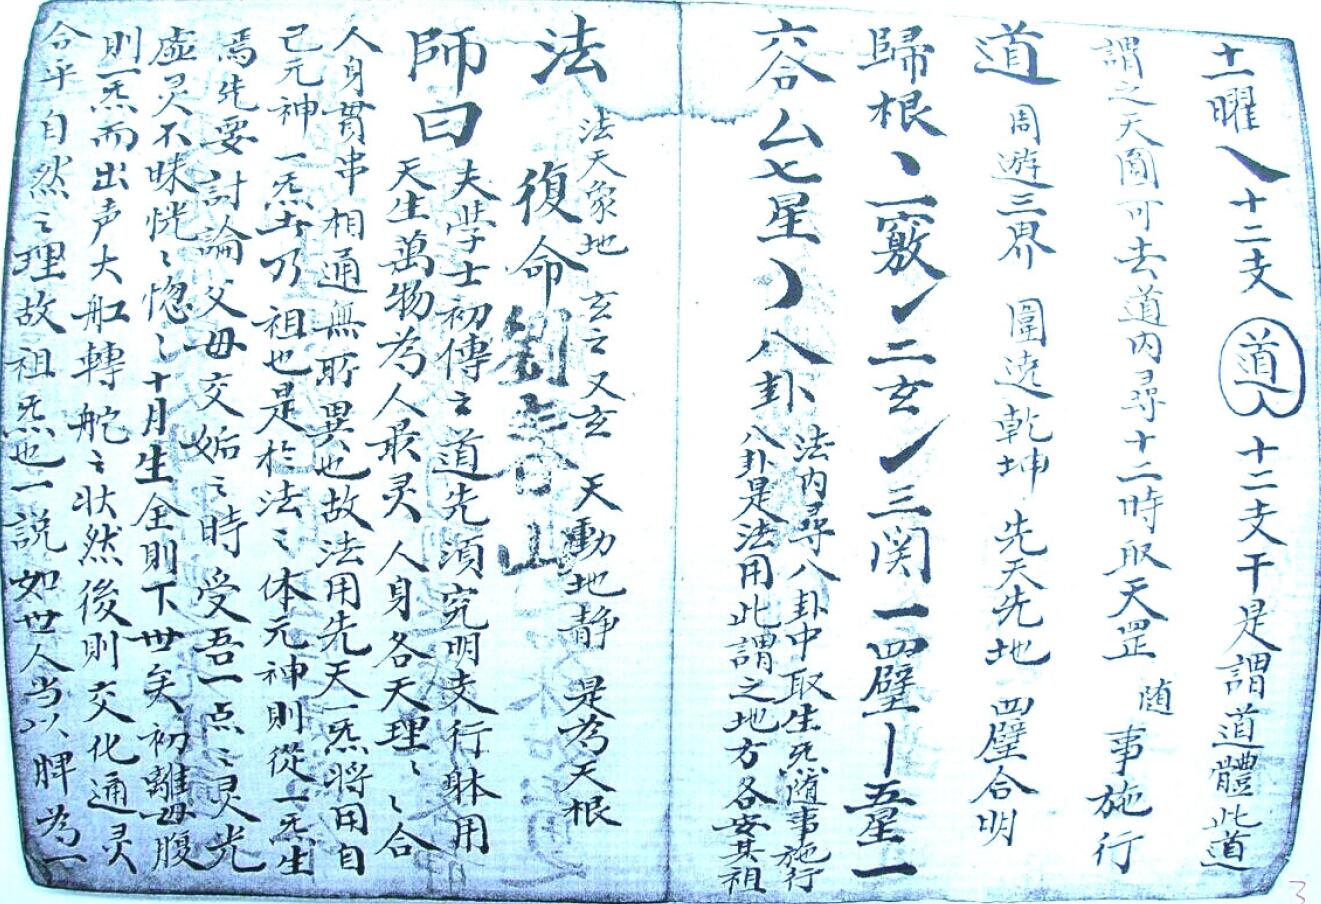 十一曜乀十二支道人十二支干是謂道體此道
謂之天圓可去道內尋十二時取天罡随事施行
道周遊三界圍遶乾坤先天先地四壁合明
歸根丶一竅丿二玄丿三関一四壁丨五星一
容厶七星八卦法內尋八卦中取生炁随事施行
八卦是法用此謂之地方各安其祖
法法天象地玄之又玄天動地静是為天根
復命劉山
師曰夫学士初傳之道先須究明支行躰用
天生萬物為人最灵人身各天理〻合
人身貫串相通無所異也故法用先天一炁將用自
己元神一炁乃祖也是於法〻体元神則從一炁生
焉先要討論父母交姤之時受吾一点之灵光
虛灵不昧恍〻惚〻十月生全則下世矣初離母腹
則一炁而出声大舡轉舵之状然後則交化通灵
合乎自然之理故祖炁也一説如世人当以脾為一
3